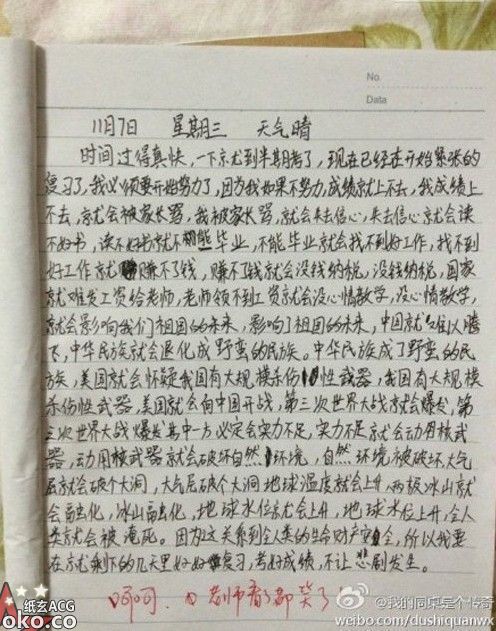 No.
Data
11月7日 星期三 天气晴
时间过得真快，一下就到半期考了，现在已经在开始紧张的
复习了，我必须要开始努力了，因为我如果不努力，成绩就上不去，我成绩上
不去，就会被家长骂，我被家长骂，就会失去信心，失去信心就会读
不好书，读不好书就不能毕业，不能毕业就会找不到好工作，找不到
好工作就赚不了钱，赚不了钱就会没钱纳税，没钱纳税，国家
就难发工资给老师，老师领不到工资就会没心情教学，没心情教学，
就会影响我们祖国的未来，影响了祖国的未来，中国就难以腾
飞，中华民族就会退化成野蛮的民族。中华民族成了野蛮的民
族，美国就会怀疑我国有大规模杀伤性武器，我国有大规模
杀伤性武器，美国就会向中国开战，第三次世界大战就会爆发，第
三次世界大战爆发其中一方必定会实力不足，实力不足就会动用核武
器，动用核武器就会破坏自然环境，自然环境被破坏，大气
层就会破个大洞，大气层破个大洞地球温度就会上升，两极冰山就
会融化，冰山融化，地球水位就会上升，地球水位上升，全人
类就会被淹死。因为这关系到全人类的生命财产安全，所以我要
在就剩下的几天里好好复习，考好成绩，不让悲剧发生。
呵呵，老师看了都笑了
纸玄ACG
oko.co
@我的同桌是个传奇
weibo.com/dushiquanwx